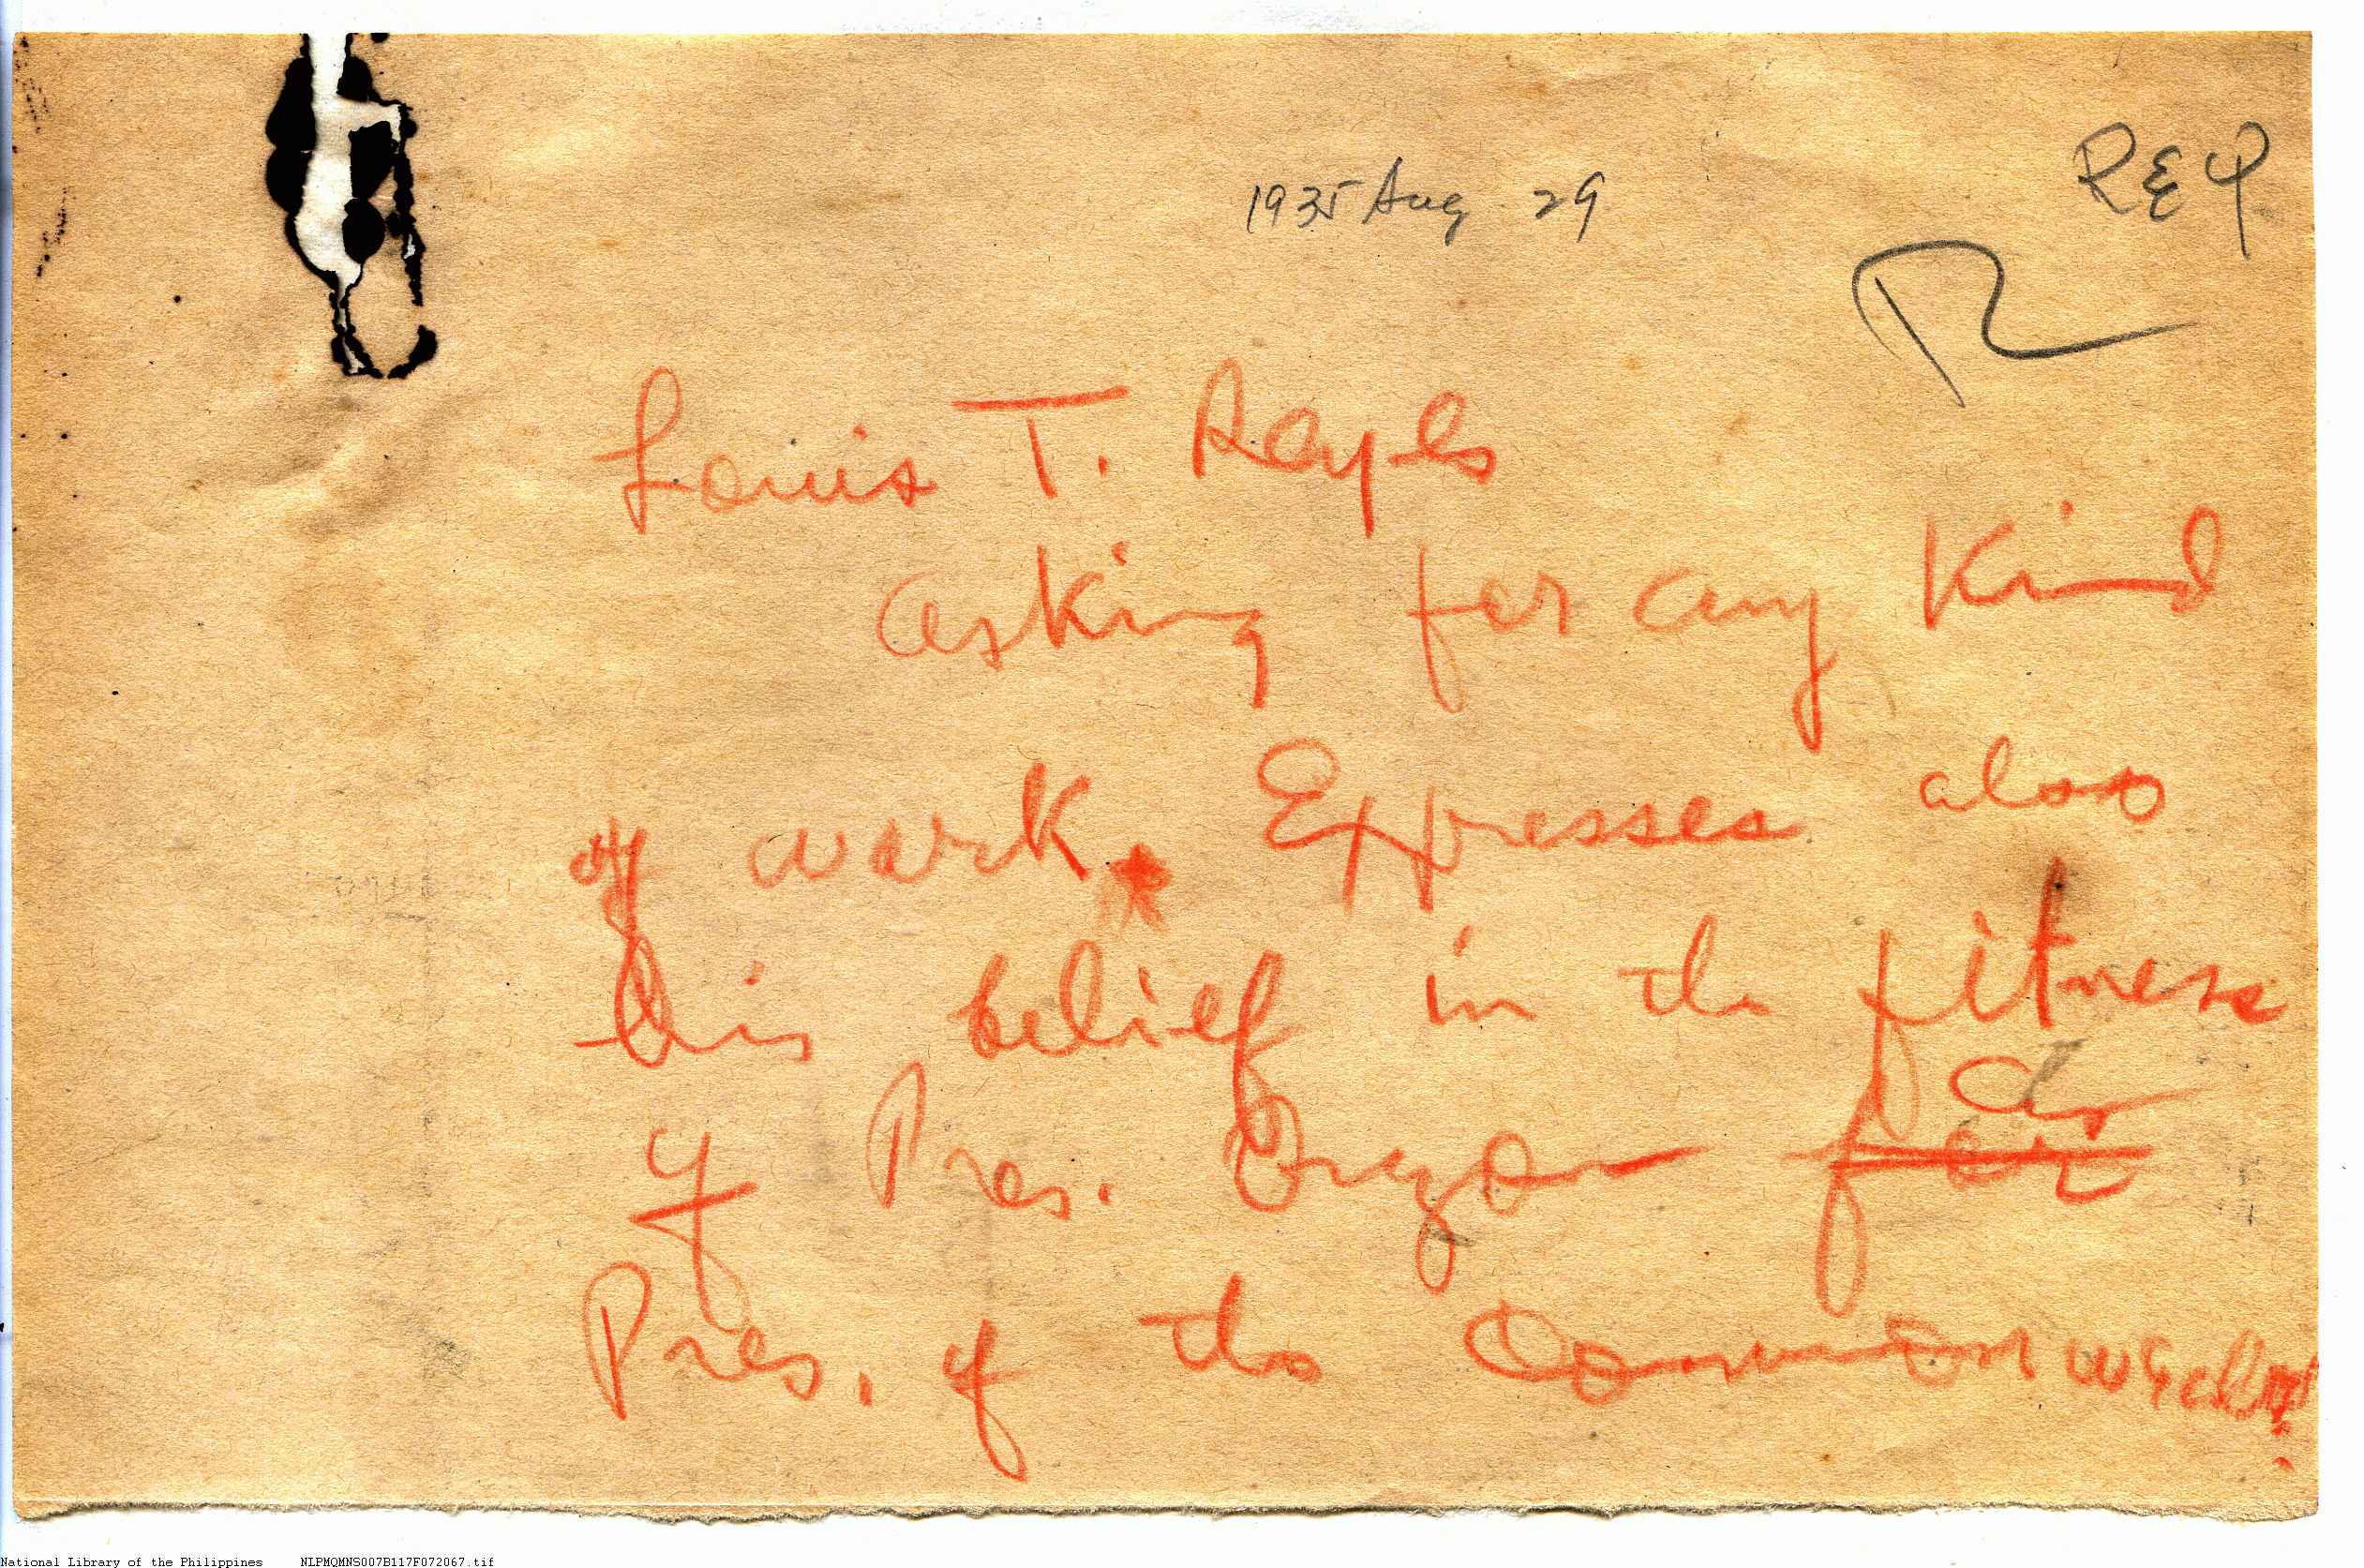 1935 Aug 29
REY
R
Louis T. Reyes
asking for any kind
of work. Expresses also
his belief in the fitness
of Pres. Quezon for as
Pres. of the Commonwealth.
National Library of the Philippines NLPMQMNS007B117F072067.tif